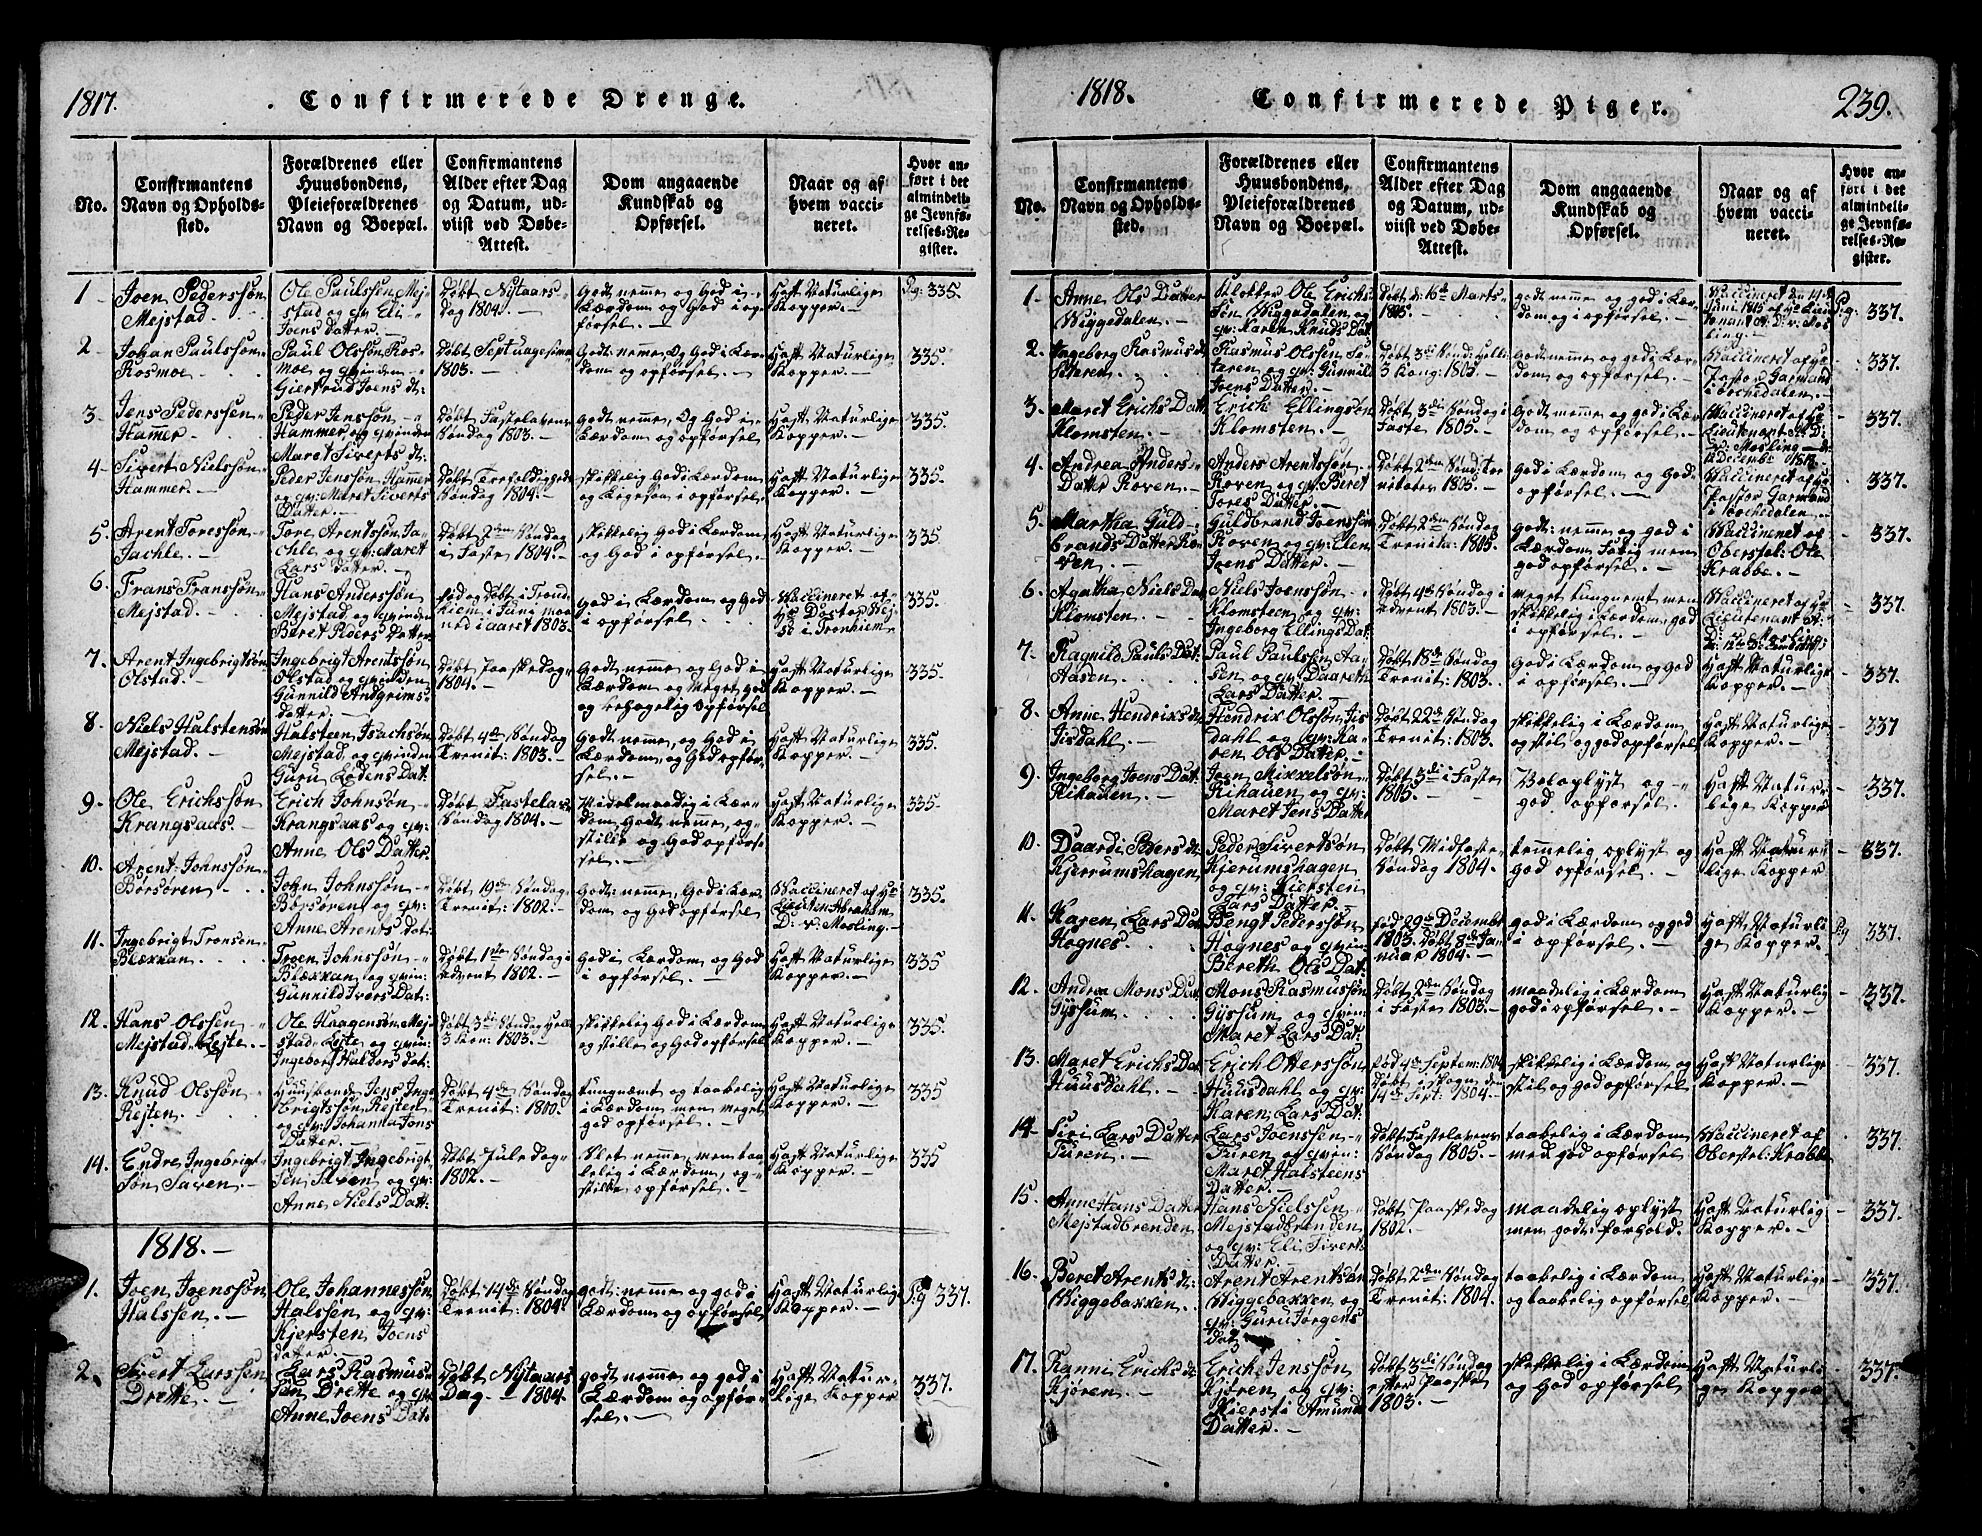 1817.
Confirmerede Drenge.
No.
Confirmantens
Navn og Opholds-
sted.
Forældrenes eller
Huusbondens,
Pleieforældrenes
Navn og Boepæl.
Confirmantens
Alder efter Dag
og Datum, ud-
viist ved Døbe-
Attest.
Dom angaaende
Kundskab og
Opførsel.
Naar og af
hvem vacci-
neret.
Hvor an-
ført i det
almindeli-
ge Jevnfø-
relses-Re-
gister.
1
Joen Pederssøn
Mejstad
Ole Paulssøn Mej-
stad og qv: Eli
Joens Datter.
Døbt Nytaars-
dag 1804.
God nemme og God i
Kærdom og God i op-
førsel.
Haft Naturlige
Kopper.
Pg: 335.
2
Johan Paulssøn
Rosmoe
Paul Olssøn Ros-
moe og qvinden
Giertrud Joens dt:
Døbt Septuagesima
1803.
Godt nemme, Og God i Kær-
dom og opførsel.
Haft Naturlige
Kopper.
335.
3.
Jens Pederssen
Hammer
Peder Jenssøn
Hammer og qvinden
Maret Siverts dt:
Døbt Fastelavens
Søndag 1803.
godt nemme, Og God i
Kærdom og opførsel
Haft Naturlige
Kopper.
335.
4
Sivert Nielssøn
Hammer.
Peder Jenssøn Hammer
og qv: Maret Siverts
Datter.
Døbt Trefoldigheds
Søndag 1804.
skikkelig God i Kærdom
og Ligesaa i opførsel.
Haft Naturlige
Kopper.
335.
5.
Arent Toressøn
Jachle.
Tore Arentssøn Ja-
chle og qv: Maret
Lars Datter.
Døbt 2den Søndag
i Faste 1804.
skikkelig God i Kærdom
og God i opførsel.
Haft Naturlige
Kopper.
335
6.
Frans Franssøn
Mejstad.
Hans Anderssøn
Mejstad og qvinden
Beret Roers Datter
fød og Døbt i Trond-
hiem i Juni maa-
ned i aaret 1803.
God i Kærdom og God
i opførsel.
Waccineret af
i Tronhiem
335.
7.
Arent Ingebrigtsøn
Olstad.
Ingebrigt Arentssøn
Olstad og qvinden
Gunnild Andgrims-
datter.
Døbt Paaskedag
1804.
Godt nemme, og God i
Kærdom og Meget god
og behagelig opførsel
Haft Naturlige
Kopper.
335.
8.
Niels Halstensøn
Mejstad.
Halsteen Isachsøn
Mejstad og qvinden
Guru Lodens Dat:
Døbt 4de Søndag
Trenit: 1803.
Godt nemme, og God i
Kærdom og God opfør-
sel.
Haft Naturlige
Kopper.
335.
9.
Ole Erichssøn
Krangsaas.
Erich Johnsøn
Krangsaas og qv:
Anne Ols Datter.
Døbt Fastelav:
Søndag 1804.
Midelmaadig i Kær-
dom, Godt nemme, og
stille og God opfør-
sel.
Haft Naturlige
Kopper.
335.
10.
Arent Johnssøn
Børsøren
John Johnssøn
Børsøren og qv:
Anne Arents dat:
Døbt 19de Søndag
Trenit: 1802.
Godt nemme, God i Kær-
dom og God opførsel.
Waccineret af Hr
Lieuten Abraham
D: v: Mosling.
335.
11.
Ingebrigt Tronsen
Blækkan.
Troen Johnssøn
Blækkan og qvin:
Gunnild Ivers Dat:
Døbt 1ste Søndag i
advent 1802.
God i Kærdom, og God
i opførsel.
Haft Naturlige
Kopper.
335
12.
Hans Olssen
Mejstad Lejte.
Ole Haagenssøn Mej-
stad-Lejte og qvin:
Ingeborg Haldors dat:
Døbt 3die Søndag Hell:
3 Kon: 1803.
skikkelig God i Kærdom
og stille og God opførsel
Haft Naturlige
Kopper.
335.
13.
Knud Olssøn
Rejten.
Huusbonde Jens Inge
brigtsøn Rejten
og qv: Johanna Jons
Datter.
Døbt 4de Søndag
Trenit: 1800.
tungnæmt og taalelig
i Kærdom men meget
god opførsel.
Haft Naturlige
Kopper.
335
14.
Endre Ingebrigt-
søn Saven.
Ingebrigt Ingebrigt-
sen Saven og qv:
Anne Niels Datt:
Døbt Juledag
1802.
Slet nemme, men taa-
lelig i Kærdom, og
stille opførsel.
Haft Naturlige
Kopper.
335
1818.
1.
Joen Joenssøn
Halssen.
Ole Johannessøn
Halssen og qv:
Kjersten Joens
datter.
Døbt 14de Søndag
Trenit: 1804.
godt nemme og god i
Kærdom og opførsel
Haft Naturlige
Kopper.
Pg 337.
2.
Sivert Larssen
Drette.
Lars Rasmus-
sen Drette og qv:
Anne Joens Dat:
Døbt Nytaars
Dag 1804.
godt nemme og god i
Kærdom og opfør-
sel.
Haft Natur-
lige Kopper
337.
1818.
Confirmerede Piger.
239.
No.
Confirmantens
Navn og Opholds-
sted.
Forældrenes eller
Huusbondens,
Pleieforældrenes
Navn og Boepæl.
Confirmantens
Alder efter Dag
og Datum, ud-
viist ved Døbe-
Attest.
Dom angaaende
Kundskab og
Opførsel.
Naar og af
hvem vacci-
neret.
Hvor an-
ført i det
almindeli-
ge Jevnfø-
relses-Re-
gister.
1.
Anne Ols Datter
Wiggedalen.
Klokker Ole Erichs-
søn Wiggedalen og
qv: Karen Knuds Dat
Døbt d: 16de Marts
1805.
godt nemme og god i Kær-
dom og i opførsel.
Waccineret den 14de
Juni 1815 af Hr Lieu
tenant A: D: v: Mos
ling.
Pg: 337.
2.
Ingeborg Rasmus dt
Rasmus Olssen
og qv: Gunnild
Joens Datter.
Døbt 3die Sønd: Helle
3 Kong: 1805.
godt nemme og god i Kær-
dom og opførsel.
Waccineret af Hr
Pastor Garmand
i Wochedalen.
337.
3.
Maret Erichs Datt
Klomsten.
Erich Ellingsøn
Klomsten.
Døbt 3die Søndag i
Faste 1805.
godt nemme og god i Kær
dom og opførsel.
Waccineret af Hr
Lieutenant A: D:
v: Mosling
December 1817.
337.
4.
Andrea Anders
Datter Roven.
Anders Arentssøn
Roven og qv: Beret
Tores Datter.
Døbt 2den Sønd: Tre
nitates 1805.
god i Kærdom og God
opførsel.
Waccineret af Hr
Pastor Garmand
i Wochedalen.
337.
5.
Martha Guld-
brands Datter Ro-
ven.
Guldbrand Joenssøn
Roven og qv: Elen
Joens Datter.
Døbt 2den Søndag
Trenita: 1805.
godt nemme og god i
Kærdom Fatig men
god opførsel.
Waccineret af
Oberstl: Ole
Krabbe.
337.
6.
Agatha Niels Dat
Klomsten.
Niels Joenssøn
Klomsteen og qv:
Ingeborg Ellings Dat:
Døbt 4de Søndag i
advent 1803.
meget tungnemt men
skikkelig i Kærdom, god
i opførsel.
Waccineret af Hr
Lieutenant A:
D: v: Mosling
337.
7.
Ragnild Pauls Dat:
Aasen.
Paul Paulssen Aa-
sen og qv: Daareth
Lars Datter.
Døbt 18de Søndag
Trenit: 1803.
God i Kærdom og god
i opførsel.
Haft Naturlige
Kopper.
337.
8.
Anne Hendrixs dt:
Jisdahl.
Hendrix Olssøn Jis
dahl og qv: Ka-
ren Ols Datter.
Døbt 22de Søndag
Trenit: 1803.
skikkelig i Kærdom
og stil og god opførsel
Haft Naturlige
Kopper.
337
9.
Ingeborg Joens Dat:
Rihauen.
Joen Mikkelsøn
Rihauen og qv:
Maret Jens Datter
Døbt 3die i Faste
1805.
Vel oplyst og
god opførsel.
Haft Natur-
lige Kopper
337.
10.
Daardi Peders dt:
Kjerrumshagen
Peder Sivertsøn
Kjerumshagen
og qv: Kiersten
Lars Datter.
Døbt Midfaste
Søndag 1804.
temmelig oplyst og
god opførsel.
Haft Natur
lige Kopper
337.
11.
Karen Lars Dat
Hognes.
Bengt Pederssøn
Hognes og qvin:
Bereth Ols Dat:
fød 29de Decembr
1803. Døbt 8de Ja-
nuar 1804.
god i Kærdom og god
i opførsel.
Haft Naturli
ge Kopper.
Pg 337.
12.
Andrea Mons Dat
Gysum.
Mons Rasmussøn
Gysum og qvin:
Maret Lars Dat:
Døbt 2den Søndag
i Faste 1803.
maadelig i Kærdom
god i opførsel.
Haft Naturlig
Kopper.
337.
13.
Maret Erichs Dat
Huusdahl.
Erich Otterssøn
Huusdahl og qv:
Karen Lars Dat:
Fød 4de Septem: 1804
Døbt i Sogn: den
14de Sept: 1804.
skikkelig i Kærdom og
stil og god opførsel
Haft Naturlige
Kopper.
337.
14
Siri Lars Datter
Turen.
Lars Joenssen
Turen og qvin:
Maret Halsteens
Datter.
Døbt Fastelavens
Søndag 1805.
taalelig i Kærdom
med god opførsel
Waccineret af
Oberstel: Krabbe
337.
15.
Anne Hans Datter
Mejstadbrenden
Hans Nielssen
Mejstadbrenden
og qv: Eli Siverts
Datter.
Døbt Paaskedag
1802.
maadelig oplyst
men godt forhold.
Haft Naturlig
Kopper.
337.
16.
Beret Arents dt:
Wiggebakken.
Arent Arentsøn
Wiggebakken og
qv: Guru Jørgens
Dat:
Døbt 2den Søndag
Trenit: 1804.
taalelig i Kærdom
og taalelig opførsel
Haft Naturlige
Kopper.
337.
17.
Ranni Erichs dt
Kjøren.
Erich Jenssøn
Kjøren og qv:
Kiersti Amunds
Datter.
Døbt 3die Søndag
efter Paaske
1803.
skikkelig i Kærdom
og God opførsel
Haft Naturli
ge Kopper
337.